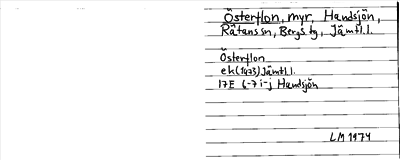 Österflon, myr, Handsjön,
Rätanssn, Bergs tg, Jämtl.l.
Österflon
ek(1973)Jämtl.l.
17E 6-7 i-j Handsjön
LM 1974